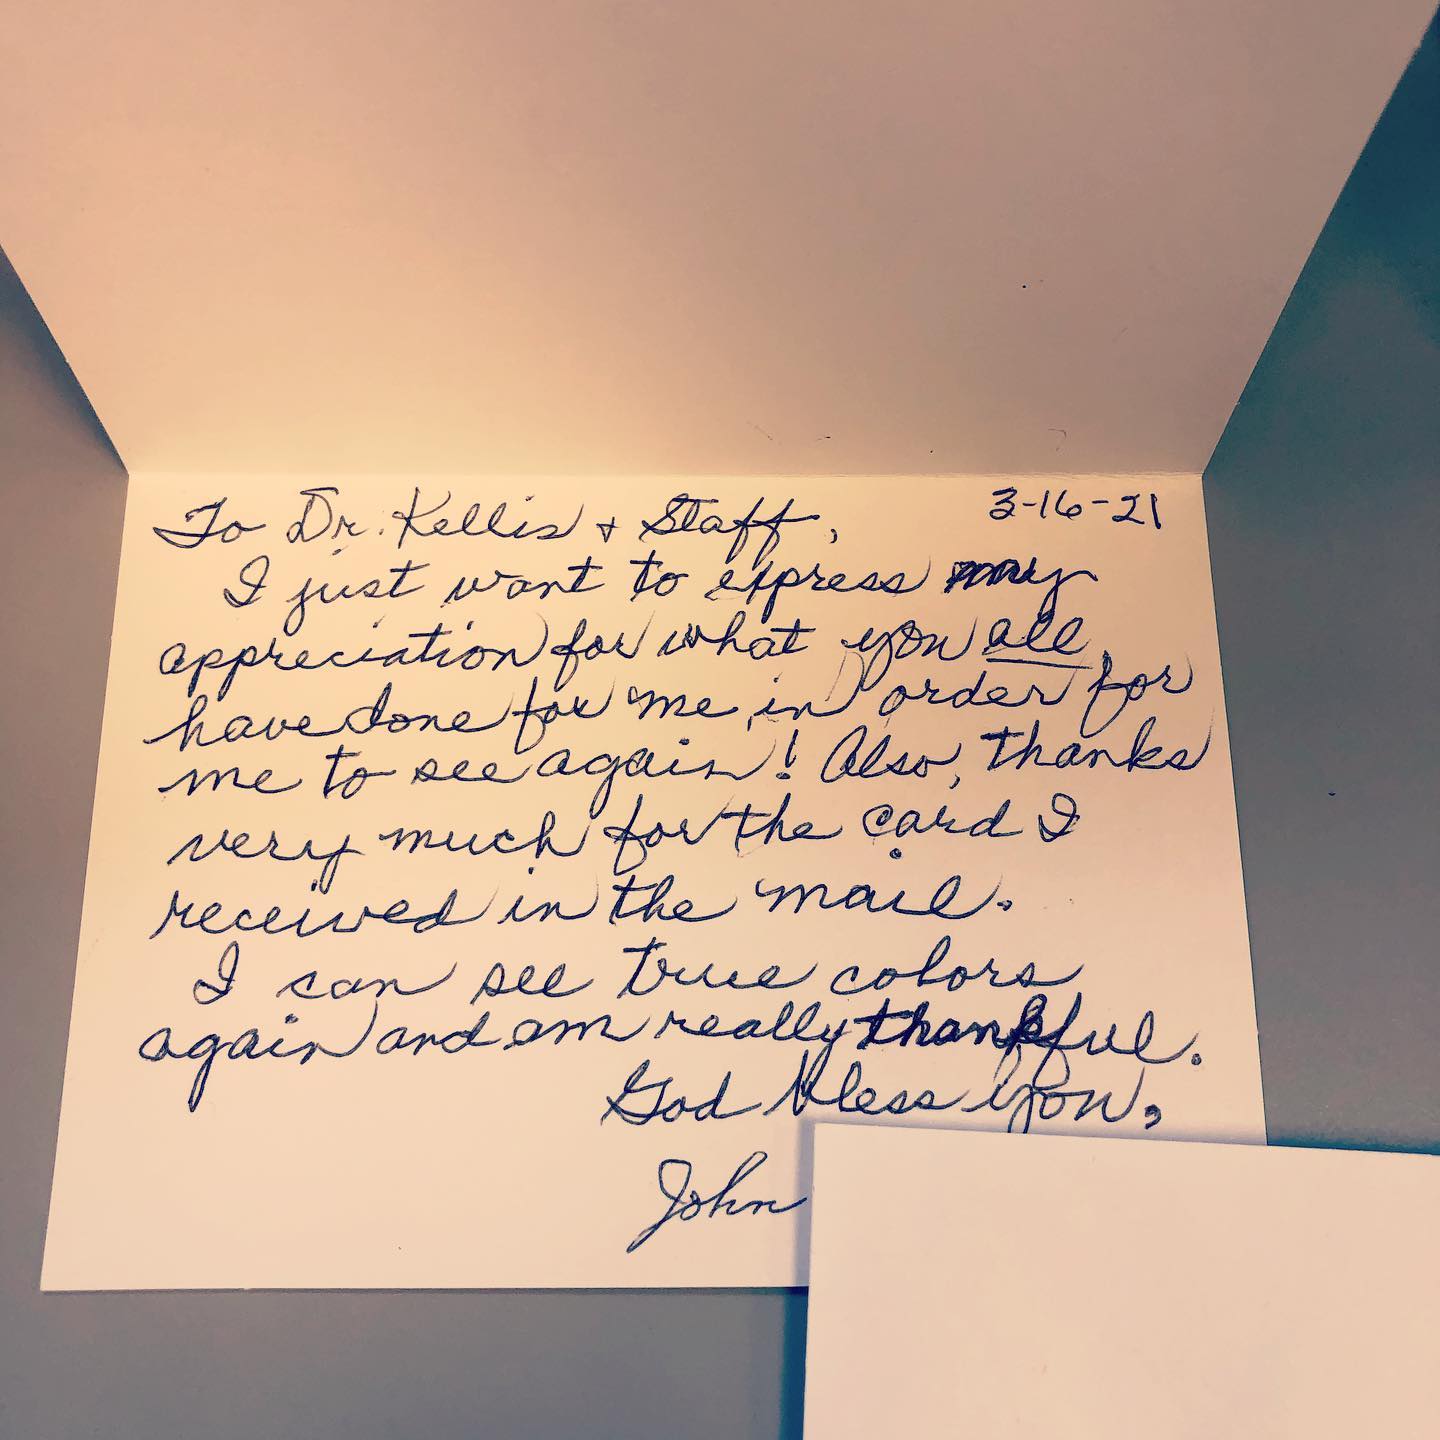 To Dr. Kellis + Staff, 3-16-21
I just want to express my
appreciation for what you all
have done for me in order for
me to see again! Also, thanks
very much for the card I
received in the mail.
I can see true colors
again and am really thankful.
God bless you,
John